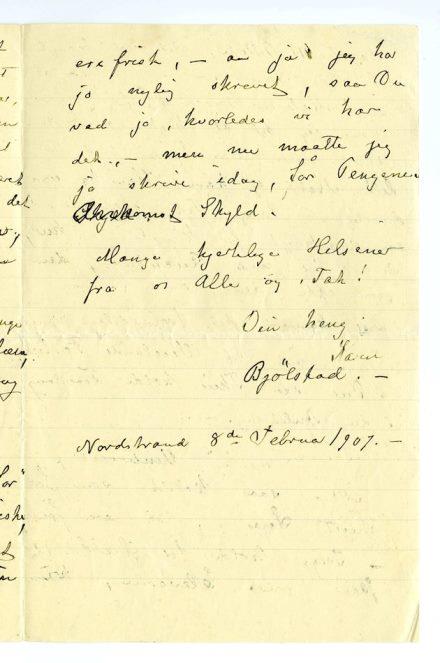 ere frisk, – aa ja! jeg har
jo nylig skrevet, saa Du
ved jo, hvorledes vi har
det, – men nu maatte jeg
jo skrive idag, for Pengenes
Skyld.
Mange kjerlige Helsener
fra os Alle og, Tak!
Din heng:
Bjölstad. –
Nordstrand 8de Februar 1907. –